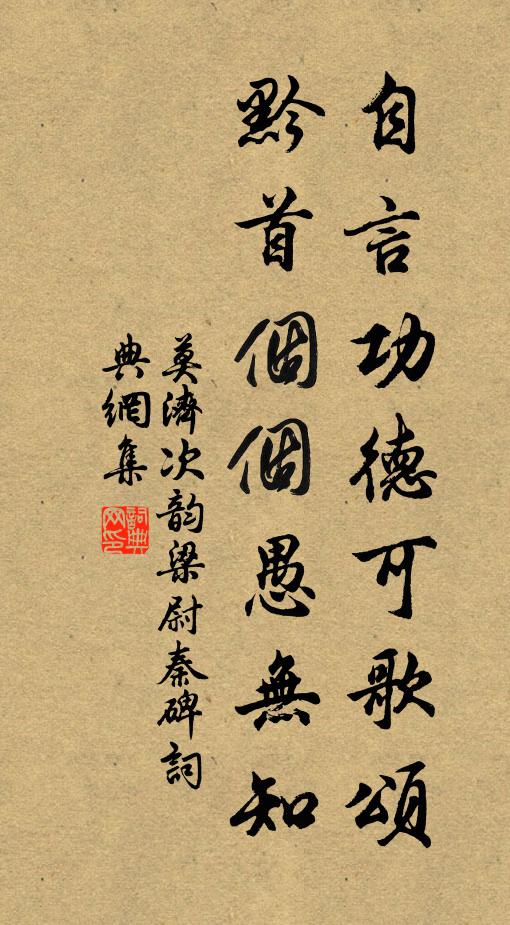 自言功德可歌頌
黔首個個愚無知
莫濟次韵梁尉秦碑詞
典網集
詞典
网印